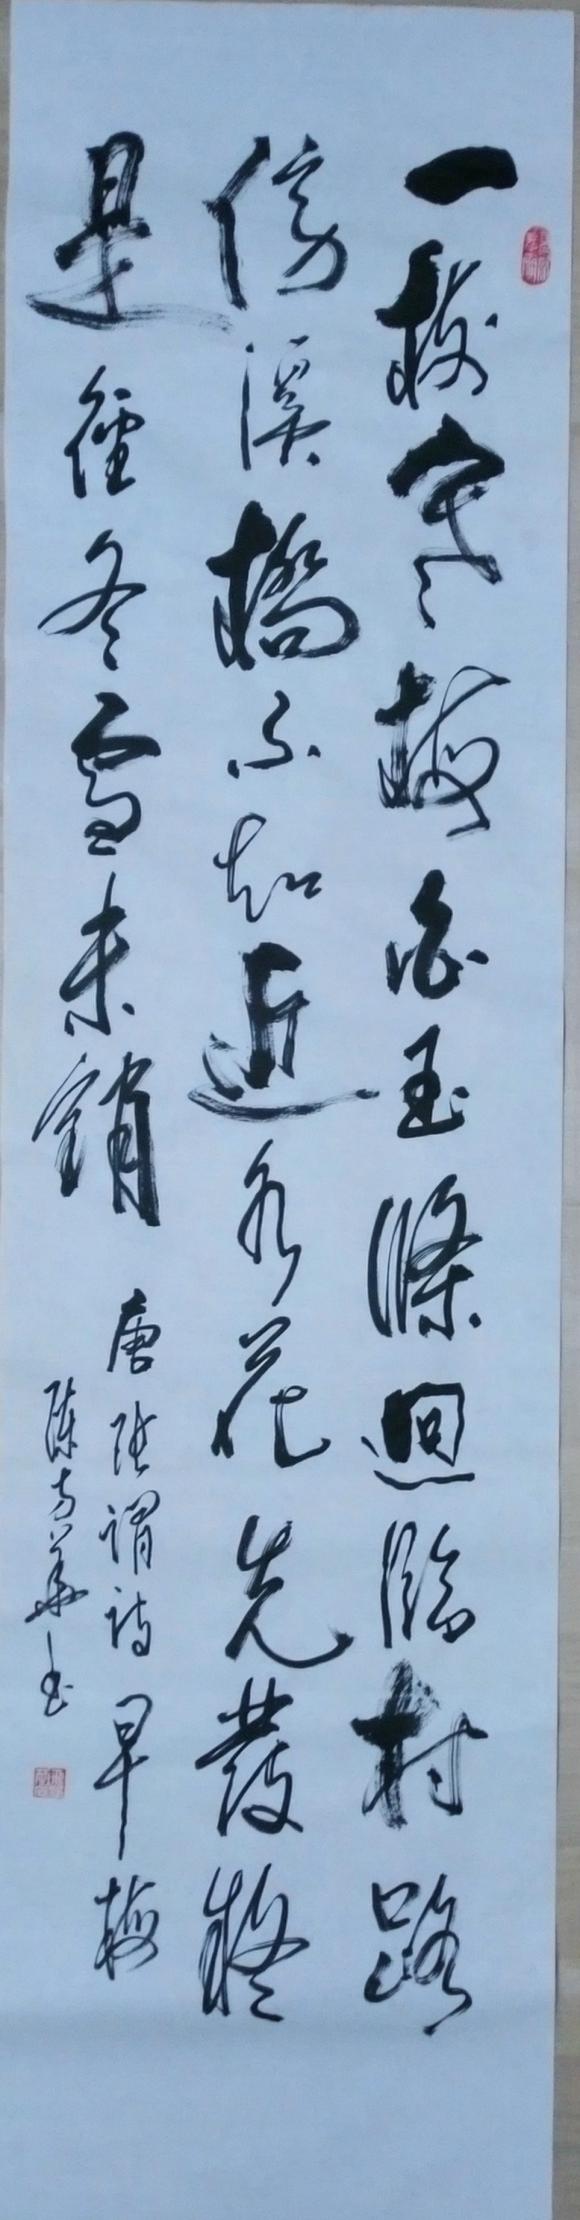 一樹寒梅白玉條迴臨村路
傍溪橋不知近水花先發疑
是經冬雪未銷
唐張謂詩早梅
陳 華书